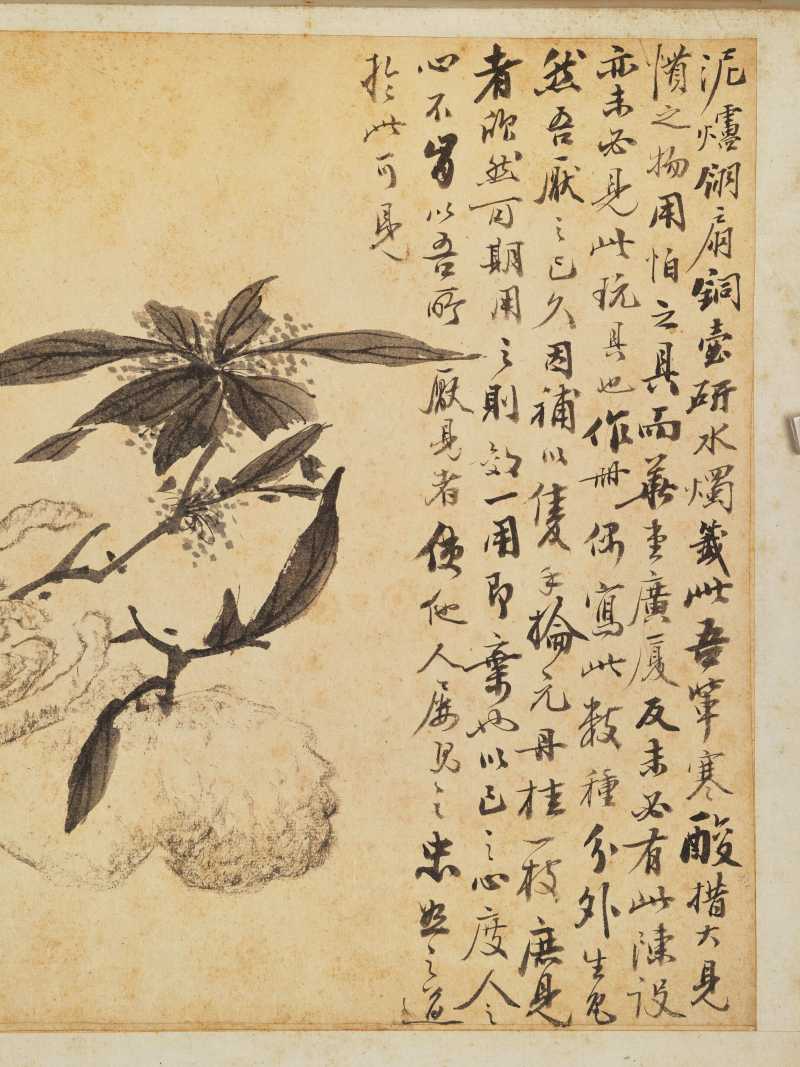 泥爐翎扇銅壺研水燭籤此吾輩寒酸措大見
慣之物用怕之具而華堂廣廈反未必有此陳設
亦未必見此玩具也作冊偶寫此數種分外生色
然吾厭之已久因補以隻手掄元丹桂一枝庶見
者欣然可期用之則效一用即棄也以己之心度人之
心不肯以吾所厭見者使他人屢見之忠恕之道
於此可見